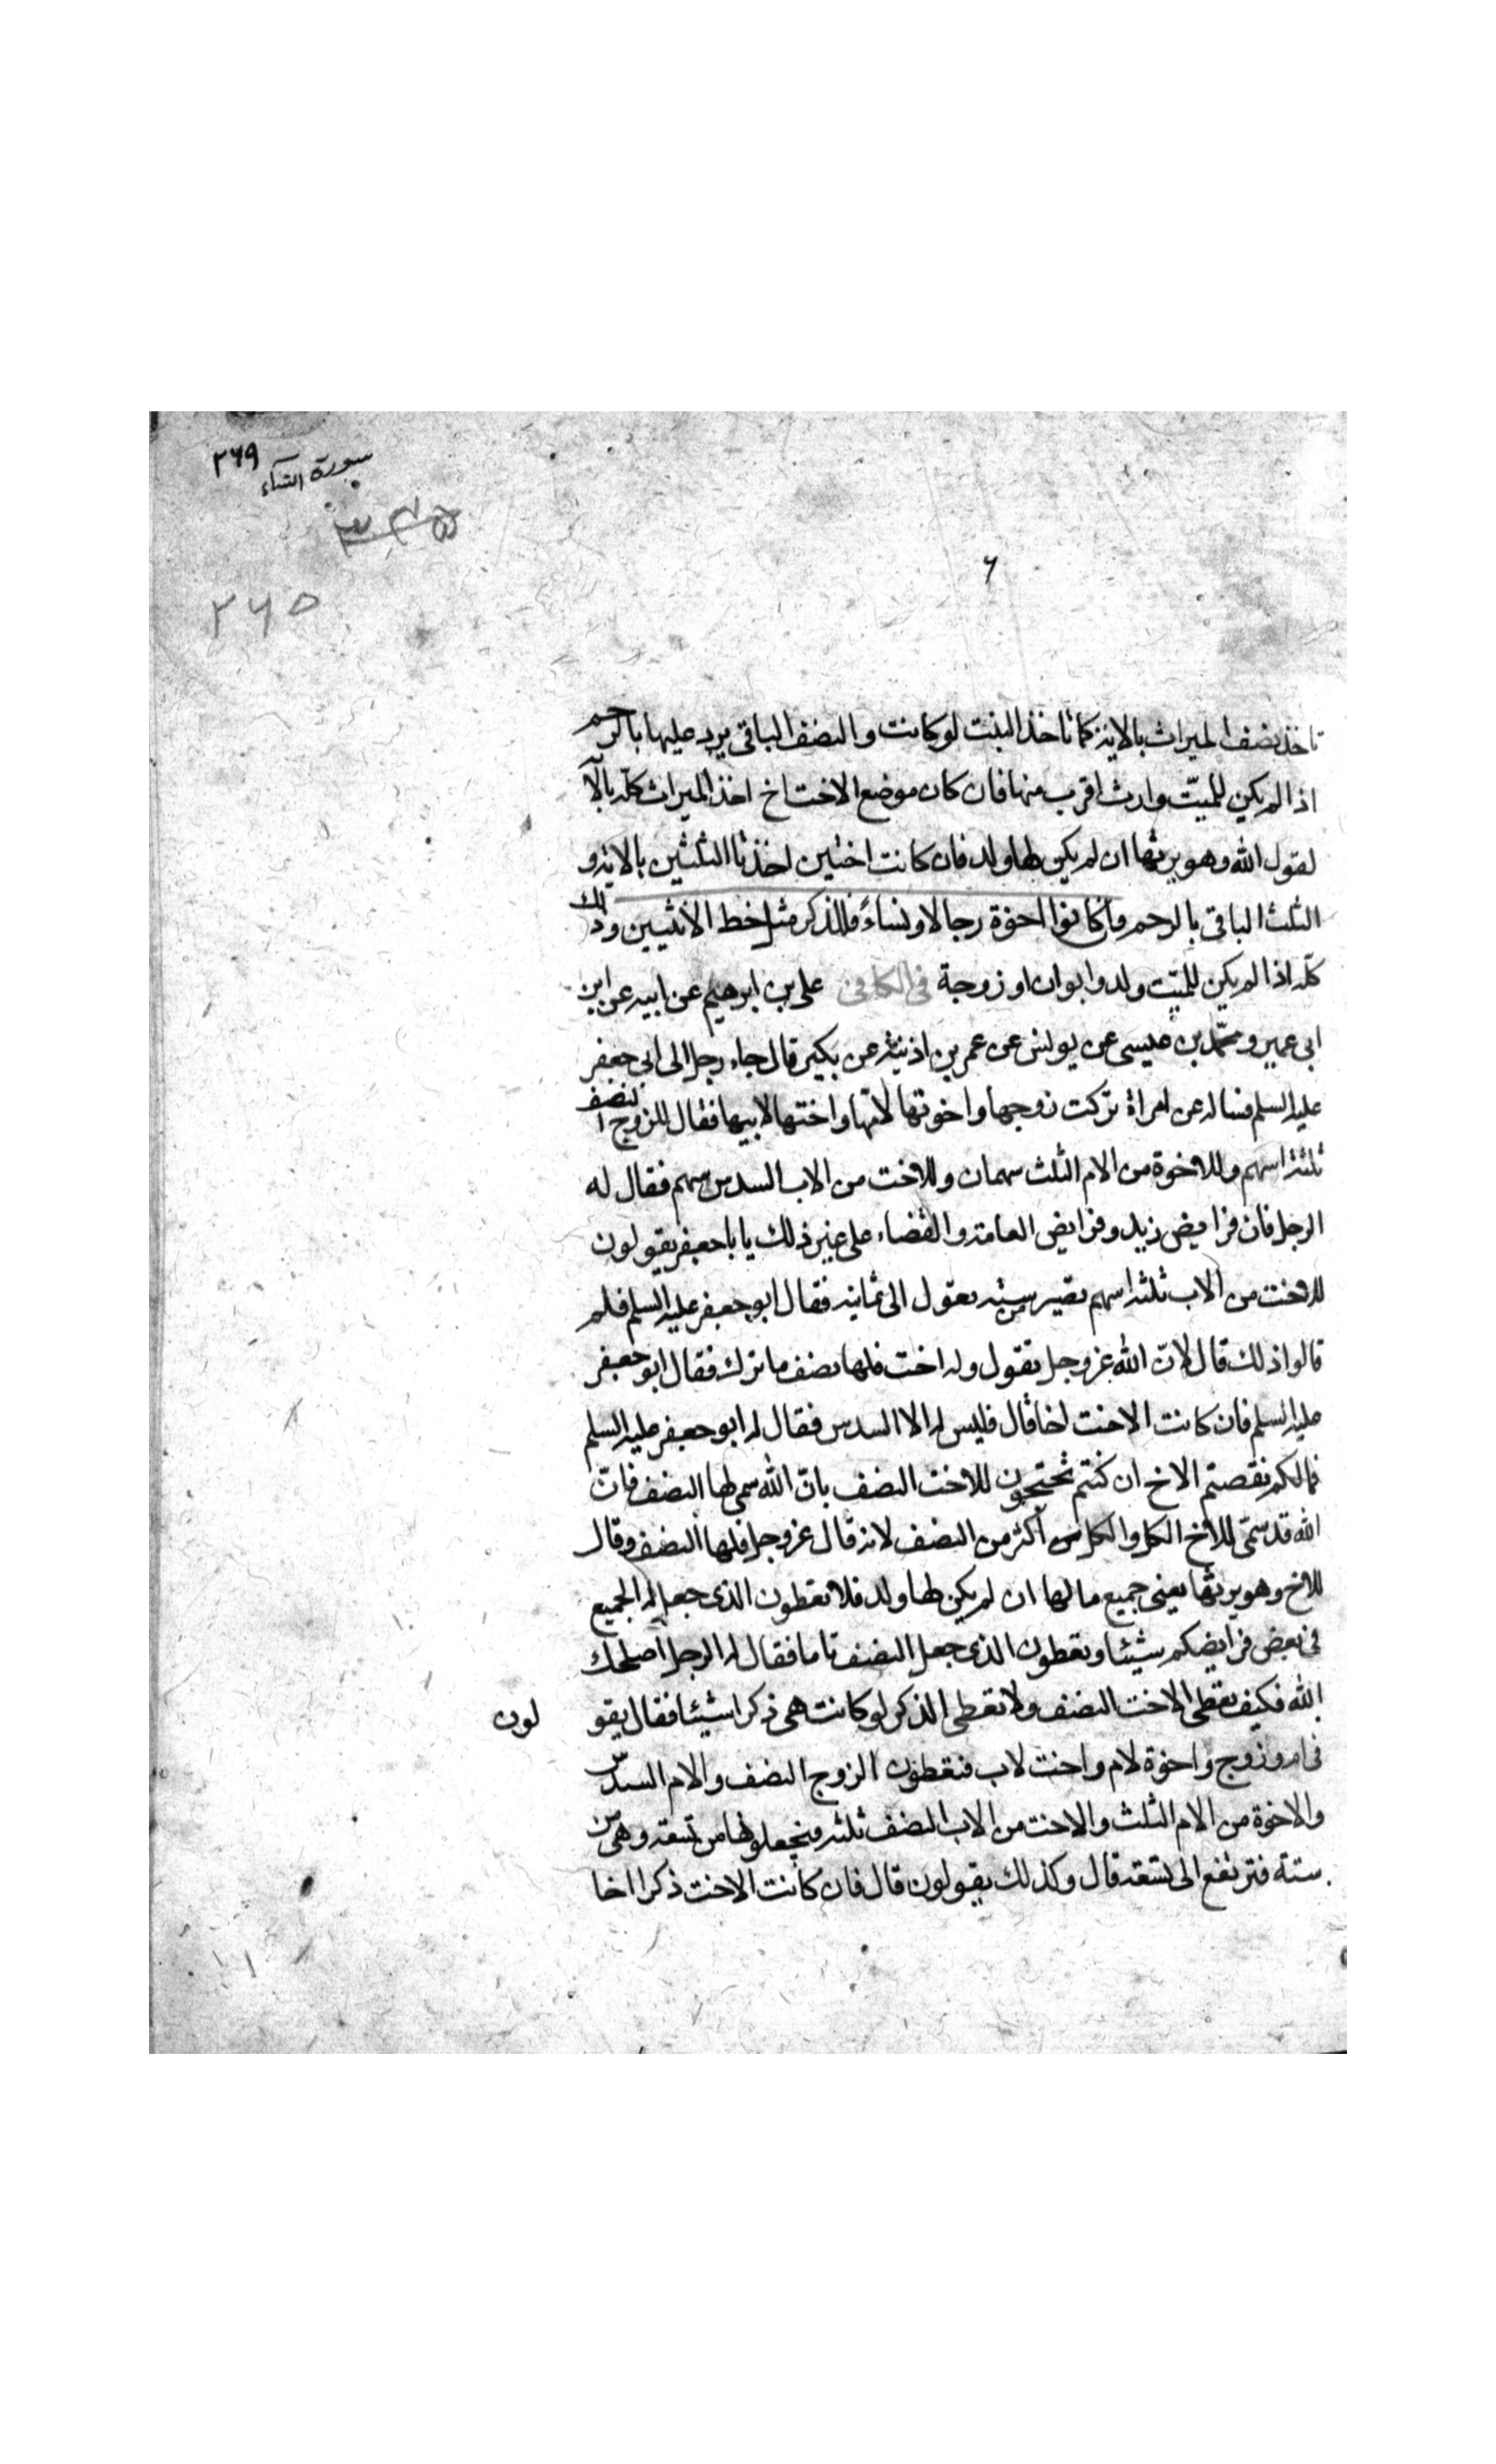 سورة النساء ٢٦٩
٢٦٥
٦
تاخذ نصف الميراث بالاية كما تاخذ البنت لو كانت والنصف الباقى يرد عليها بالرحم
اذا لم يكن للميت وارث اقرب منها فان كان موضع الاخت اخ اخذ الميراث كله بالآ
لقول الله وهو يرثها ان لم يكن لها ولد فان كانت اختين اخذتا الثلثين بالاية و
الثلث الباقى بالرحم وان كانوا اخوة رجالا ونساءً فللذكر مثل حظ الانثيين وذلك
كله اذا لم يكن للميت ولد وابوان او زوجة فى الكافى على بن ابرهيم عن ابيه عن ابن
ابى عمير ومحمد بن عيسى عن يونس عن عمر بن اذينة عن بكير قال جاء رجل الى ابى جعفر
عليه السلم فساله عن امراة تركت زوجها واخوتها لامها واختها لابيها فقال للزوج النصف
ثلثة اسهم وللاخوة من الام الثلث سهمان وللاخت من الاب السدس سهم فقال له
الرجل فان فرايض زيد وفرايض العامة والقضاء على غير ذلك يا با جعفر يقولون
للاخت من الاب ثلثة اسهم تصير من ستة تعول الى ثمانية فقال ابو جعفر عليه السلم فلم
قالوا ذلك قال لان الله عز وجل يقول وله اخت فلها نصف ما ترك فقال ابو جعفر
عليه السلم فان كانت الاخت اخا قال فليس له الا السدس فقال له ابو جعفر عليه السلم
فما لكم نقصتم الاخ ان كنتم تحتجون للاخت النصف بانّ الله سمى لها النصف فانّ
الله قد سمّى للاخ الكل والكل اكثر من النصف لانه قال عز وجل فلها النصف وقال
للاخ وهو يرثها يعنى جميع مالها ان لم يكن لها ولد فلا تعطون الذى جعل له الجميع
فى بعض فرايضكم شيئا وتعطون الذى جعل النصف تاما فقال له الرجل اصلحك
الله فكيف تعطى الاخت النصف ولا تعطى الذكر لو كانت هى ذكرا شيئا فقال يقو لون
فى ام وزوج واخوة لام واخت لاب فتعطون الزوج النصف والام السدس
والاخوة من الام الثلث والاخت من الاب النصف ثلثة فيجعلونها من تسعة وهى من
ستة فترتفع الى تسعة قال وكذلك يقولون قال فان كانت الاخت ذكرا اخا